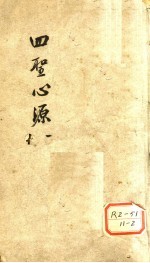 四聖心源
R2-51
11-2